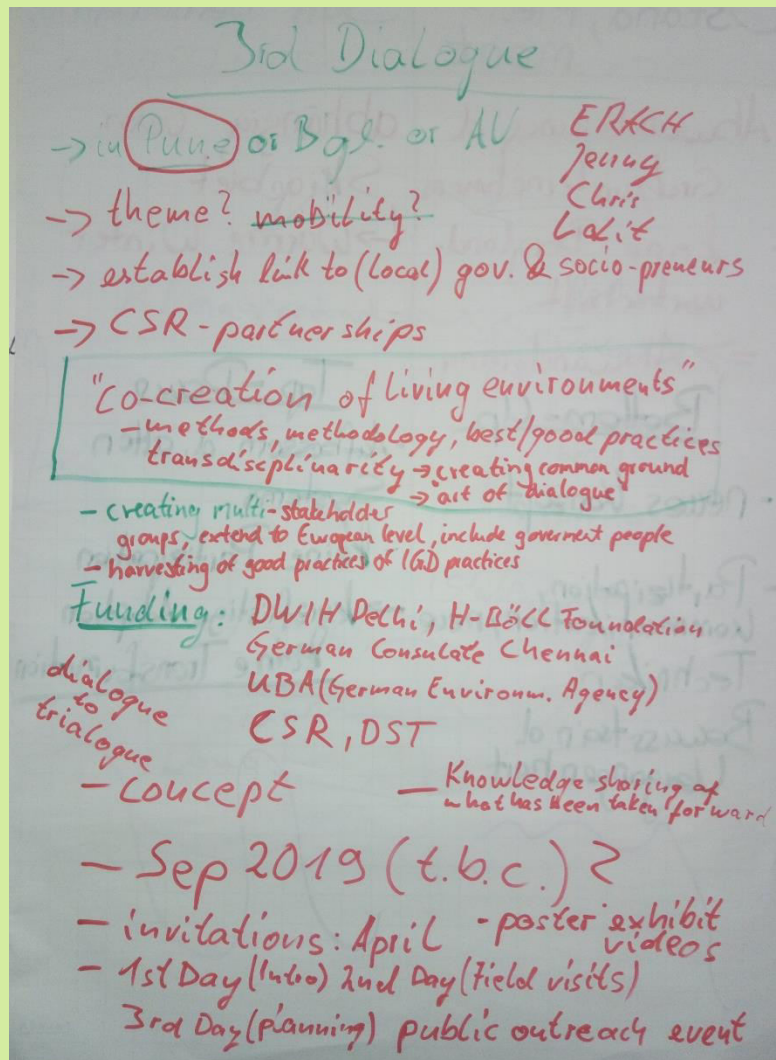 3rd Dialogue
→ in Pune or Bgl. or AV
ERACH
Jenny
Chris
Lalit
→ theme? mobility?
→ establish link to (local) gov. & socio-preneurs
→ CSR-partnerships
"co-creation of living environments"
- methods, methodology, best/good practices
transdisciplinarity → creating common ground
→ art of dialogue
- creating multi-stakeholder
groups, extend to European level, include goverment people
- harvesting of good practices of IGD practices
Funding: DWIH Delhi, H-Böll Foundation
German Consulate Chennai
UBA (German Environm. Agency)
CSR, DST
dialogue
to
trialogue
- concept
- Knowledge sharing of
what has been taken forward
- Sep 2019 (t.b.c.) ?
- invitations: April - poster exhibit
videos
- 1st Day (Intro) 2nd Day (Field visits)
3rd Day (planning) public outreach event